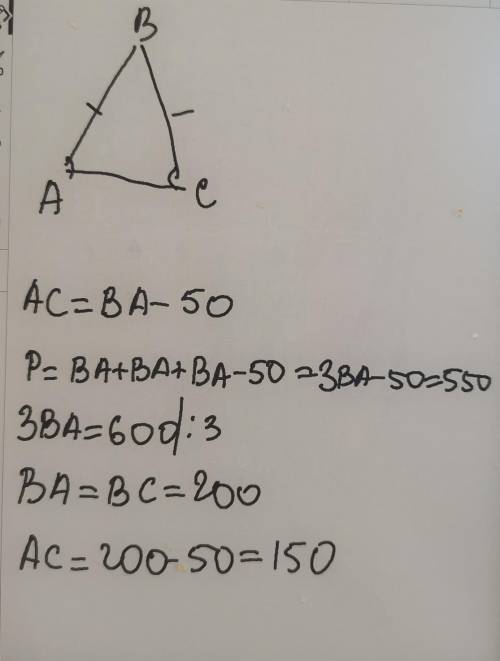 B
A
C
AC=BA-50
P=BA+BA+BA-50=3BA-50=550
3BA=600|:3
BA=BC=200
AC=200-50=150